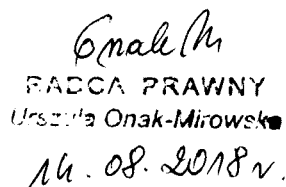 Onak M
RADCA PRAWNY
Urszula Onak-Mirowska
14. 08. 2018 r.